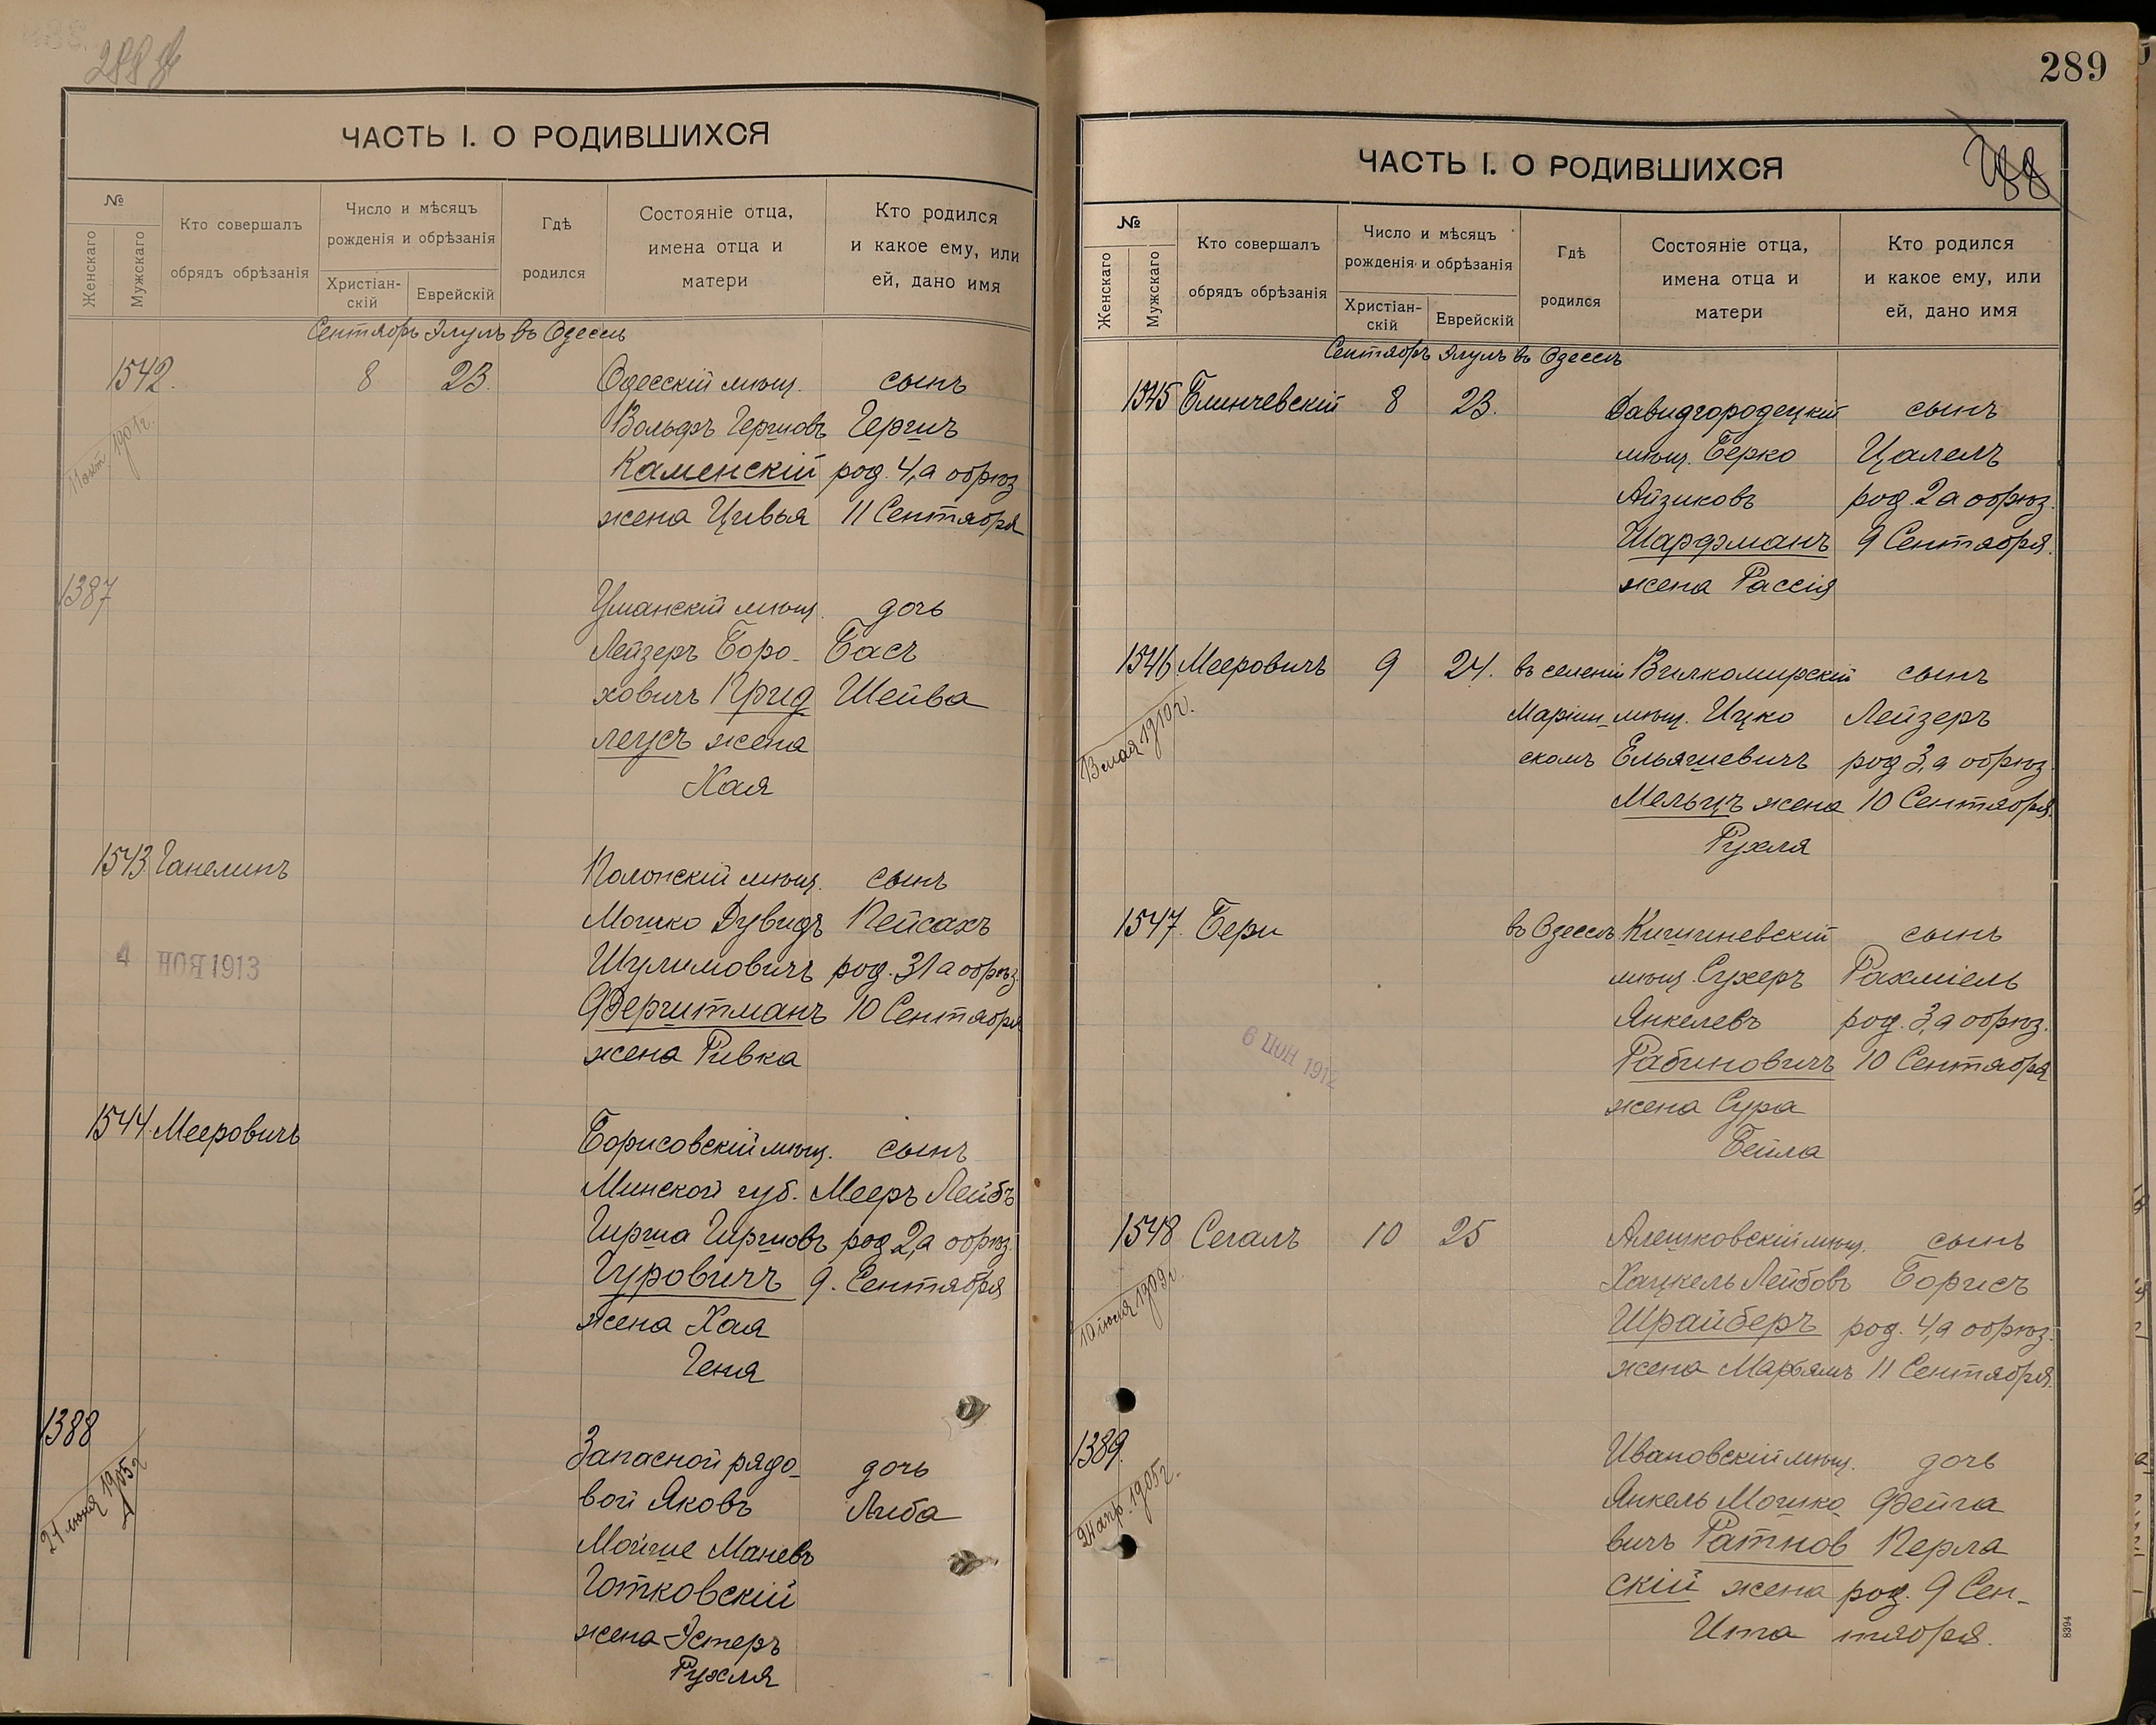 288
ЧАСТЬ I. О РОДИВШИХСЯ
№
Женскаго
Мужскаго
Кто совершалъ
обрядъ обрѣзанія
Число и мѣсяцъ
рожденія и обрѣзанія
Христіан-
скій
Еврейскій
Гдѣ
родился
Состояніе отца,
имена отца и
матери
Кто родился
и какое ему, или
ей, дано имя
Сентябрь Элулъ въ Одессѣ
1542. 8 23. Одесскій мѣщ. сынъ
Вольфъ Гершовъ Гершъ
Каменскій род. 4, а обрѣз
жена Цивья 11 Сентября
1901г.
1387 Уманскій мѣщ. дочь
Лейзеръ Боро- Бася
ховичъ Прид Шейва
леусъ жена
Хая
1543 Ганелинъ Полонскій мѣщ. сынъ
Мошко Дувидъ Пейсахъ
Шулимовичъ род. 31 а обрѣз.
Ферштманъ 10 Сентября
жена Ривка
4 НОЯ 1913
1544. Мееровичъ Борисовскій мѣщ. сынъ
Минской губ. Мееръ Лейбъ
Гирша Гиршовъ род 2, а обрѣз.
Гуровичъ 9. Сентября
жена Хая
Геня
1388 Запасной рядо- дочь
вой Яковъ Либа
Мойше Маневъ
Готковскій
жена Эстеръ
Рухля
21 июня 1905г
289
288
ЧАСТЬ I. О РОДИВШИХСЯ
№
Женскаго
Мужскаго
Кто совершалъ
обрядъ обрѣзанія
Число и мѣсяцъ
рожденія и обрѣзанія
Христіан-
скій
Еврейскій
Гдѣ
родился
Состояніе отца,
имена отца и
матери
Кто родился
и какое ему, или
ей, дано имя
Сентябрь Элулъ въ Одессѣ
1545 Блинчевскій 8 23. Давидгородецкій сынъ
мѣщ. Берко Цалелъ
Айзиковъ род. 2 а обрѣз.
Шарфманъ 9 Сентября.
жена Рассія
1546 Мееровичъ 9 24. въ селеніи Вилкомирскій сынъ
Маріин- мѣщ. Ицко Лейзеръ
скомъ Ельяшевичъ род 3, а обрѣз.
Мельцъ жена 10 Сентября.
Рухля
13 мая 1910г.
1547. Бери въ Одессѣ Кишиневскій сынъ
мѣщ. Сухеръ Рахміель
Янкелевъ род. 3, а обрѣз.
Рабиновичъ 10 Сентября
жена Сура
Бейла
6 ИЮН 1912
1548 Сегалъ 10 25 Алешковскій мѣщ. сынъ
Хацкель Лейбовъ Борисъ
Шрайберъ род. 4, а обрѣз.
жена Марьямъ 11 Сентября.
10 июля 1909г.
1389. Ивановскій мѣщ. дочь
Янкель Мошко Фейга
вичъ Ратнов Перла
скій жена род. 9 Сен-
Ита тября.
24 апр. 1905г.
8394